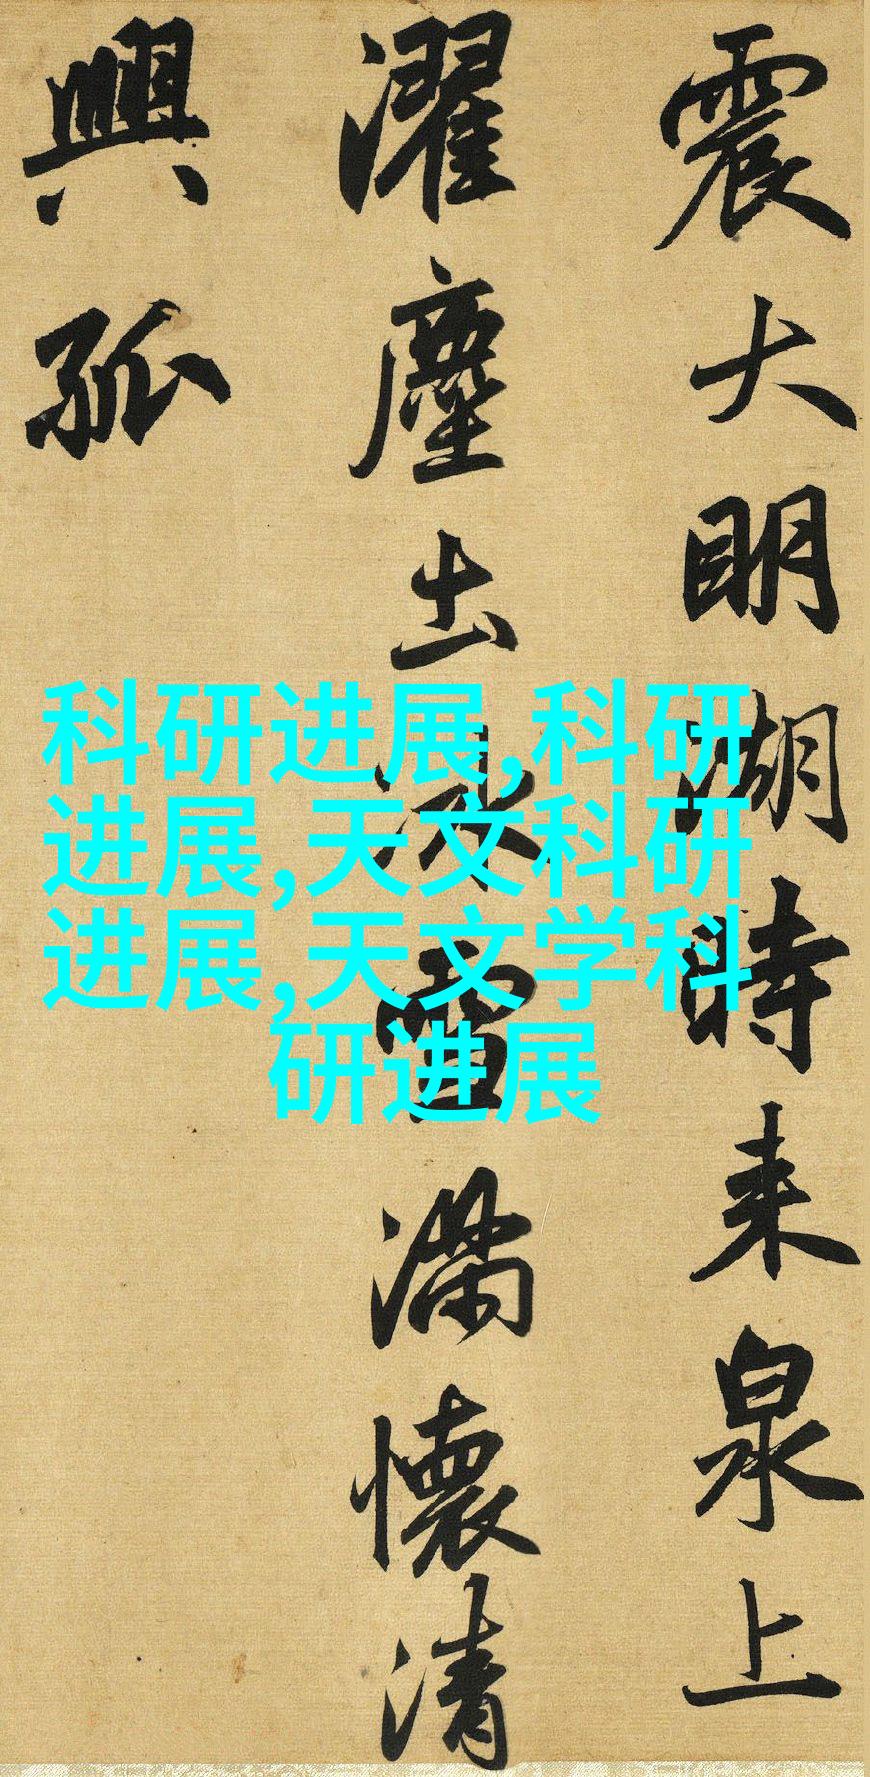 震大明湖時来泉上
濯塵土冰雪滿懷清
興孤
科研进展,科研
进展,天文科研
进展,天文学科
研进展